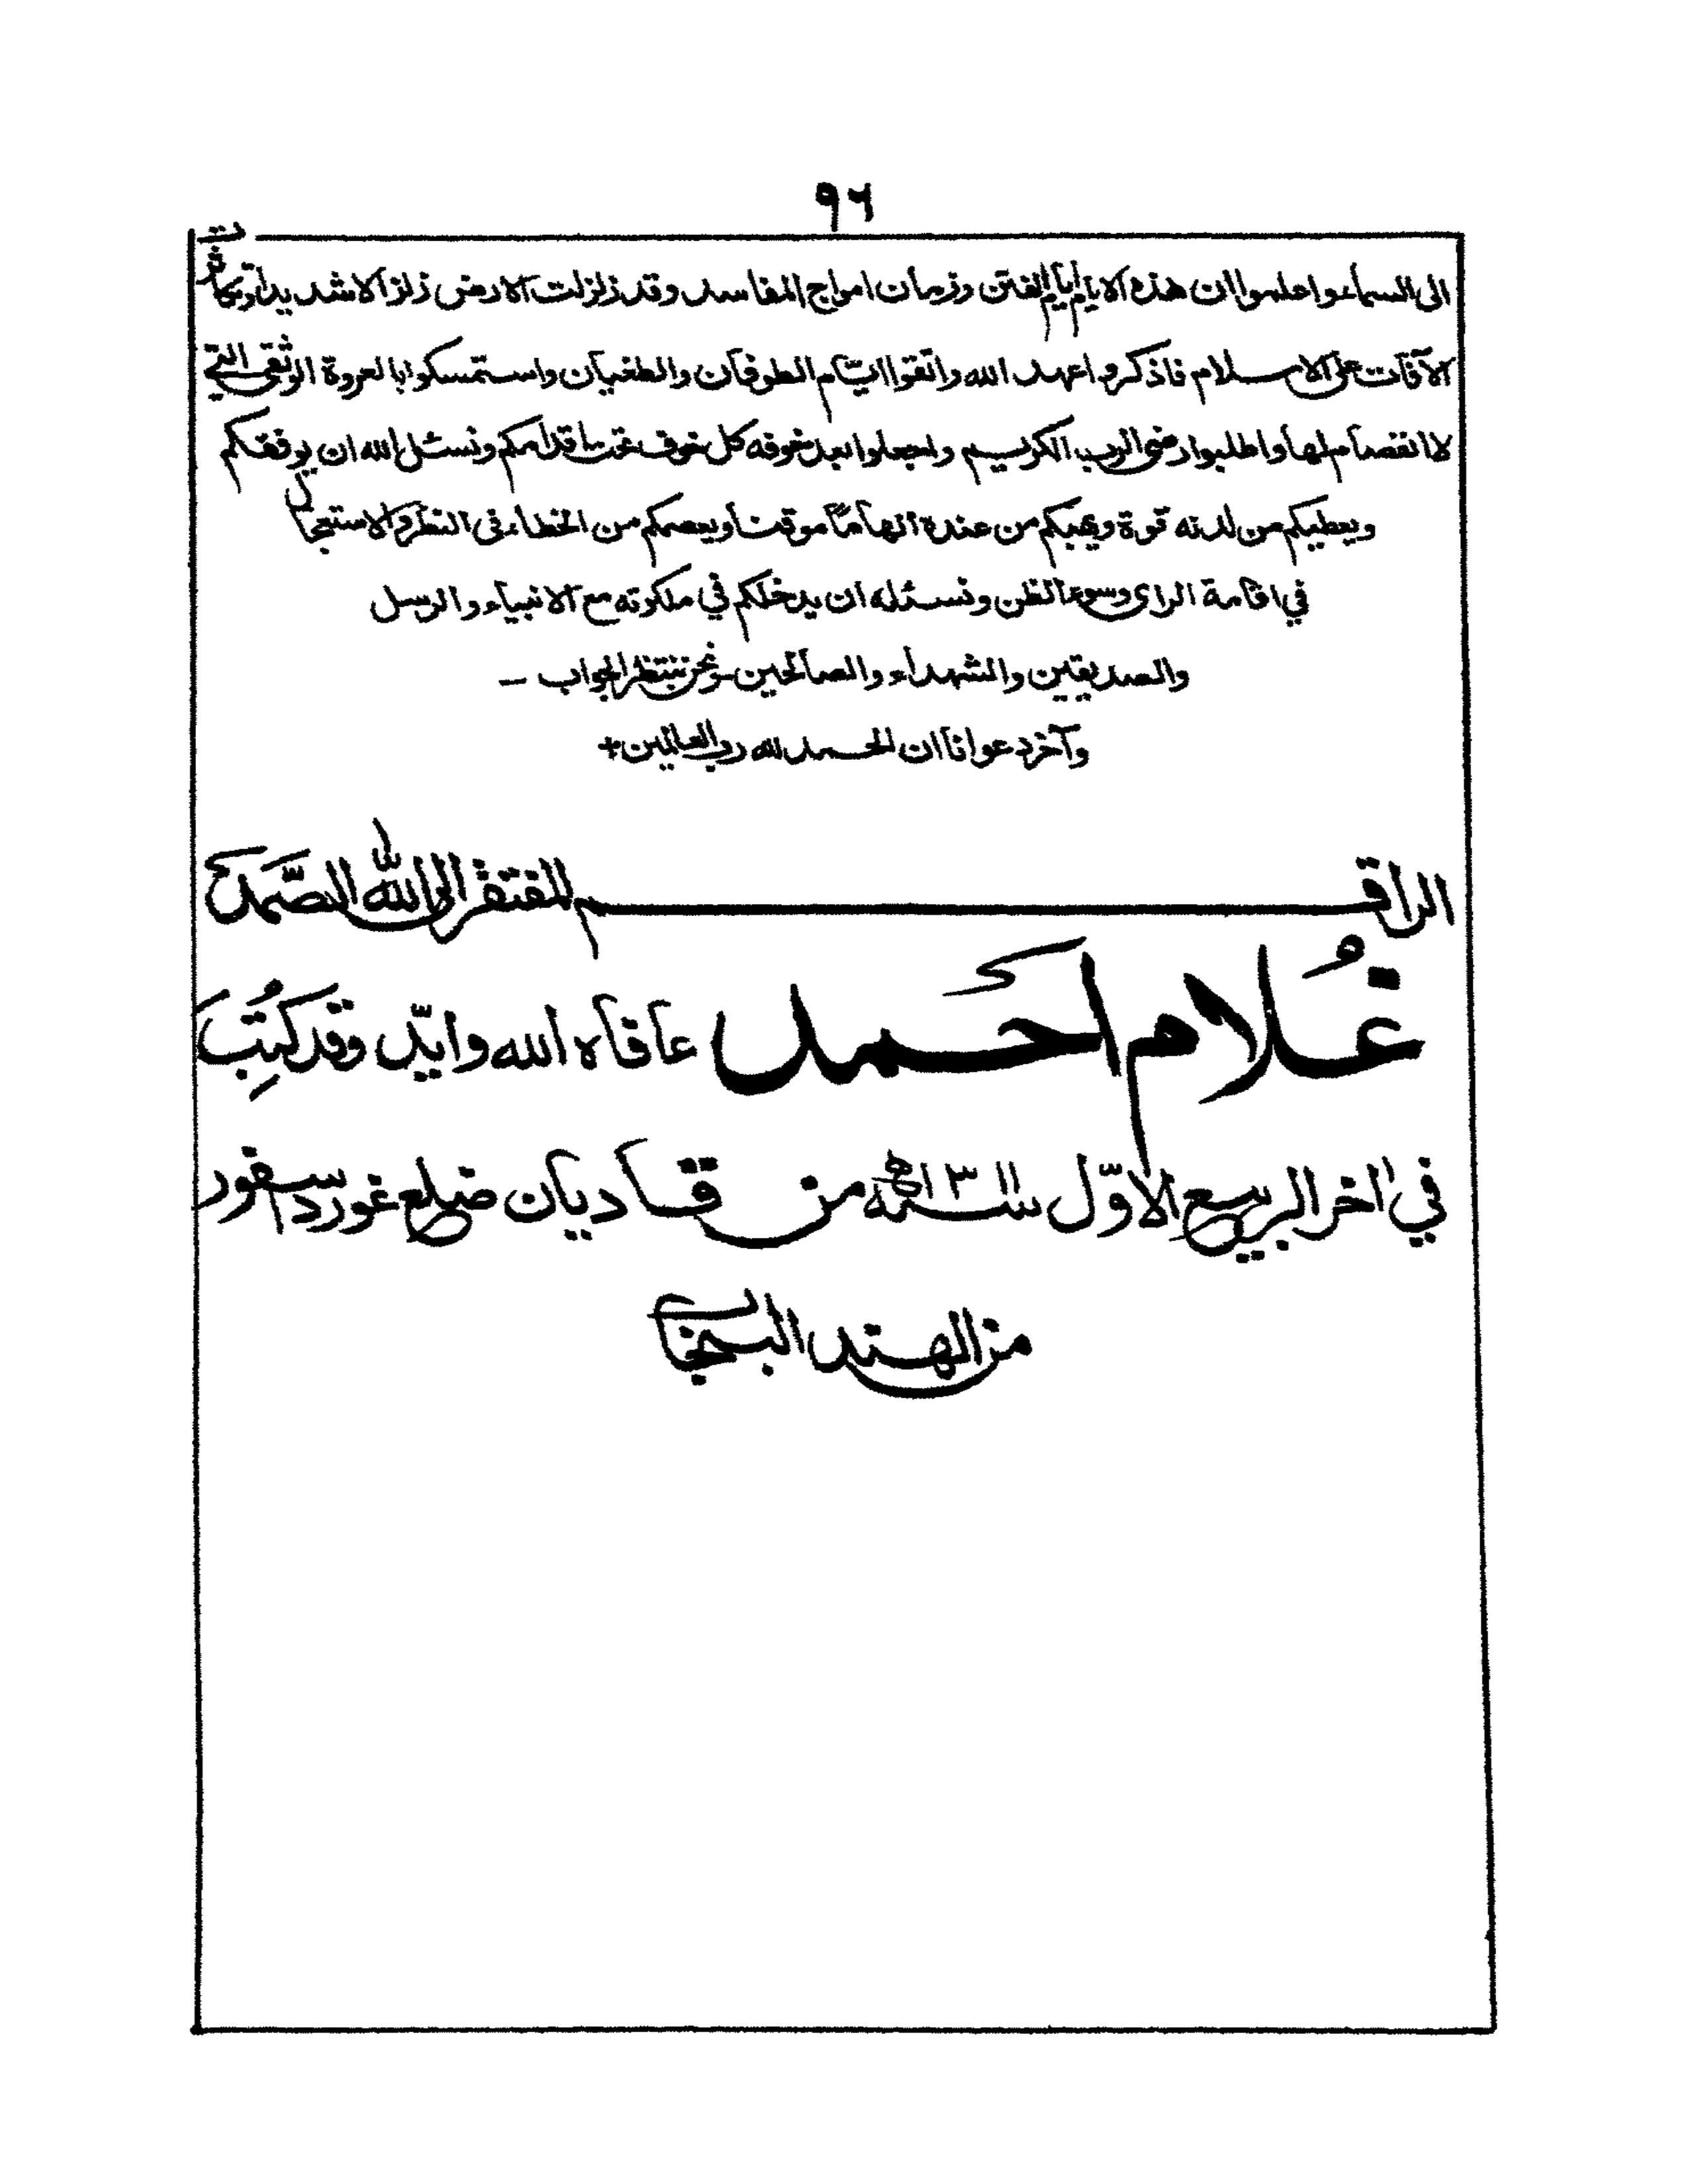 ٩٦
الى السماء واعلموا ان هذه الايام ايام الفتن وزمان امواج المفاسد وقد زلزلت الارض زلزالا شديدا وتكاثرت
الآفات على الاسلام فاذكروا عهد الله واتقوا ايام الطوفان والطغيان واستمسكوا بالعروة الوثقى التي
لا انفصام لها واطلبوا رضى الرب الكريم واجعلوا بعد خوفه كل خوف تحت اقدامكم ونسئل الله ان يوفقكم
ويعطيكم من لدنه قوة ويهبكم من عنده الهاما موقنا ويعصمكم من الخطاء فى النظر والاستعجال
في اقامة الراى وسوء الظن ونسئله ان يدخلكم في ملكوته مع الانبياء والرسل
والصديقين والشهداء والصالحين ونحن ننتظر الجواب ــ
وآخر دعوانا ان الحمد لله رب العالمين+
الراقـــم المفتقر الى الله الصَّمد
غُلام احَمد عافاه الله وايّد وقد كُتِبَ
في اخر الربيع الاوّل سنه ١٣١١ھ من قاديان ضلع غورداسفور
من الهند البنجاب